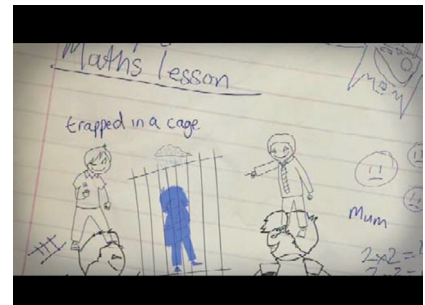 Maths lesson
trapped in a cage
Mum
2x2=